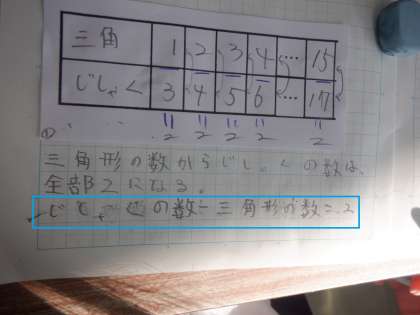 三角 1 2 3 4 … 15
じしゃく 3 4 5 6 … 17
2 2 2 2 2
三角形の数からじしゃくの数は、
全部2になる。
じしゃくの数−三角形の数=2